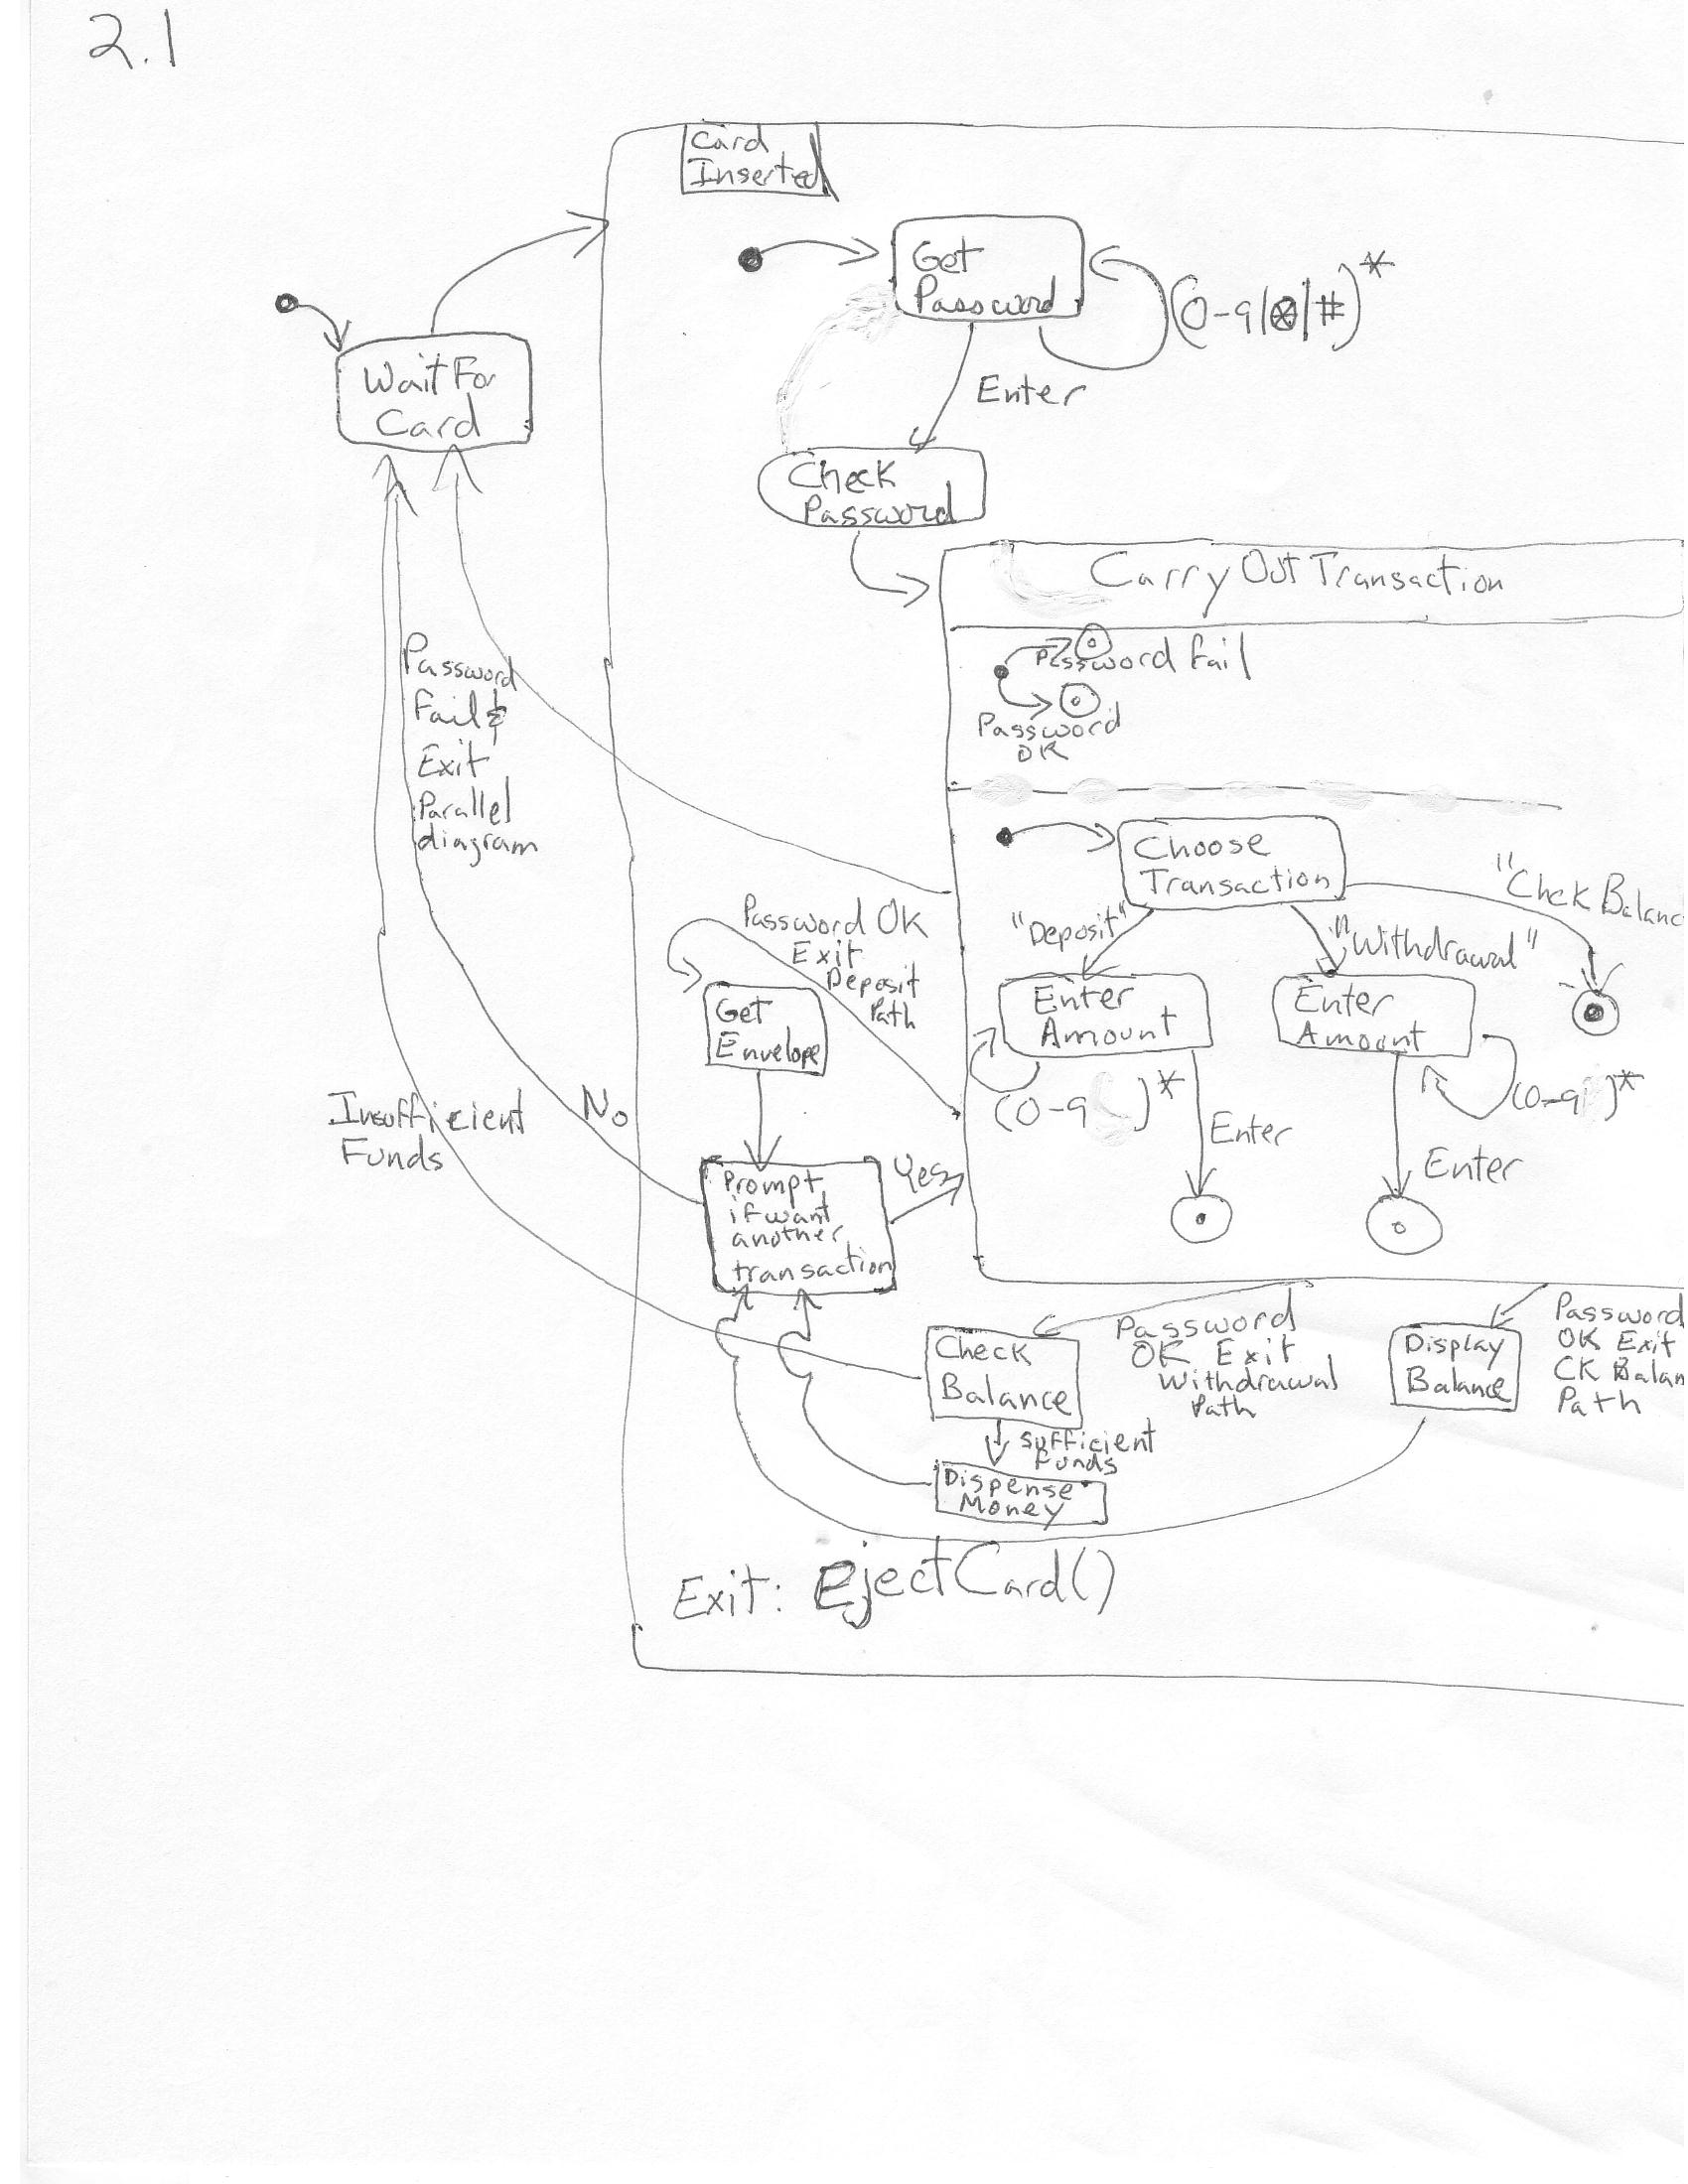 2.1
Card
Inserted
Get
Password
(0-9|*|#)*
Enter
Wait For
Card
Check
Password
Carry Out Transaction
Password Fail
Password
OK
Password
Fail &
Exit
Parallel
diagram
Choose
Transaction
"Chck Balanc
"Deposit"
"Withdrawal"
Password OK
Exit
Deposit
Path
Get
Envelope
Enter
Amount
Enter
Amount
(0-9)*
(0-9)*
Enter
Enter
Insufficient
Funds
No
Yes
Prompt
if want
another
transaction
Check
Balance
Password
OK Exit
Withdrawal
Path
Display
Balance
Password
OK Exit
CK Balan
Path
Sufficient
Funds
Dispense
Money
Exit: ejectCard()